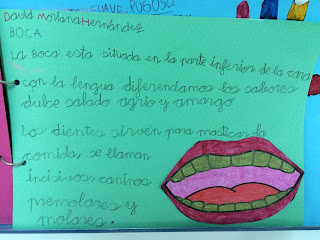 SUAVE, RUGOSO
David Montana Hernández
BOCA
La boca esta situada en la parte inferior de la cara
con la lengua diferenciamos los sabores
dulce salado agrio y amargo
Los dientes sirven para masticar la
comida, se llaman
incisivos caninos
premolares y
molares.